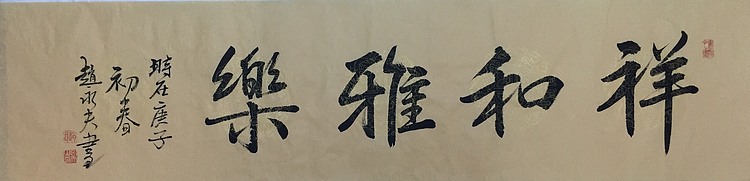 祥和雅樂
時在庚子
初春
趙永夫書